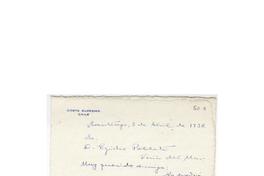 CORTE SUPREMA
CHILE
Santiago, 2 de Abril de 1938
Sr.
D. Egidio Poblete
Viña del Mar
Muy querido amigo: